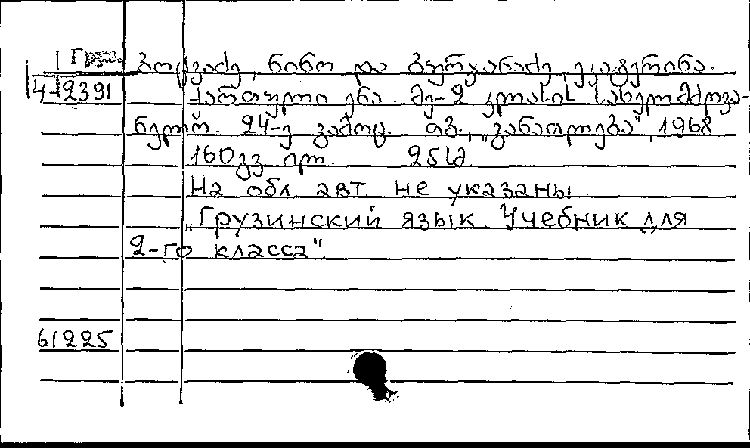 Груз.
4-2391
ბოცვაძე, ნინო და ბურჯანაძე, ეკატერინა.
ქართული ენა მე-2 კლასის სახელმძღვა-
ნელო. 24-ე გამოც. თბ., „განათლება“, 1968
160 გვ.
На обл авт не указаны
„Грузинский язык. Учебник для
2-го класса"
61225